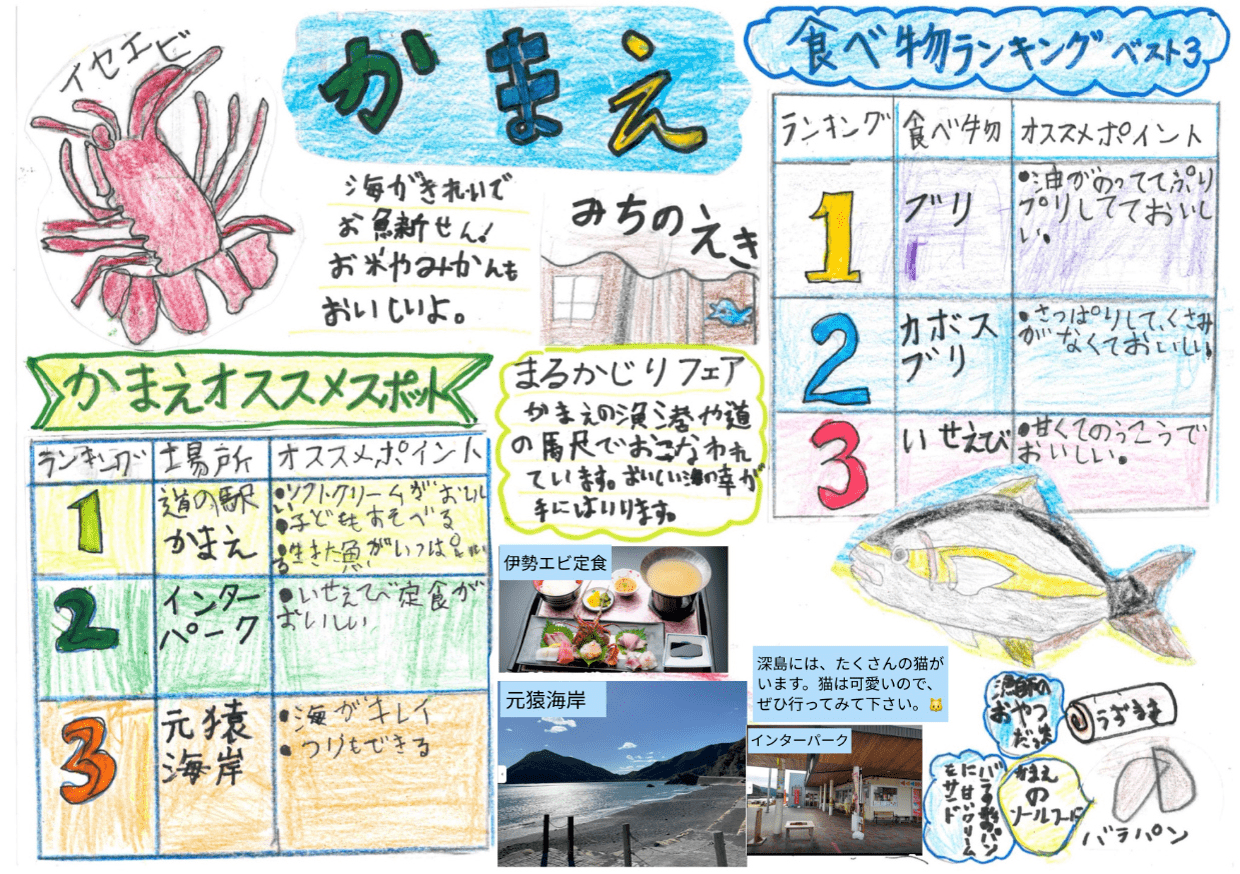 イセエビ
かまえ
海がきれいで
お魚新せん!
お米やみかんも
おいしいよ。
みちのえき
食べ物ランキングベスト3
ランキング 食べ物 オススメポイント
1 ブリ
・油がのっててぷり
プリしてておいし
い。
2 カボス
ブリ
・さっぱりして、くさみ
がなくておいしい。
3 いせえび
・甘くてのうこうで
おいしい。
かまえオススメスポット
ランキング 場所 オススメポイント
1 道の駅
かまえ
・ソフトクリームがおいし
い
・子どももあそべる
・生きた魚がいっぱいい
る
2 インター
パーク
・いせえび定食が
おいしい
3 元猿
海岸
・海がキレイ
・つりもできる
まるかじりフェア
かまえの漁港や道
の駅でおこなわれ
ています。おいしい海の幸が
手にはいります。
伊勢エビ定食
元猿海岸
深島には、たくさんの猫が
います。猫は可愛いので、
ぜひ行ってみて下さい。🐱
インターパーク
おやつ
だった
うずまき
バラの形のパン
に甘いクリーム
をサンド
かまえ
の
ソールフード
バラパン